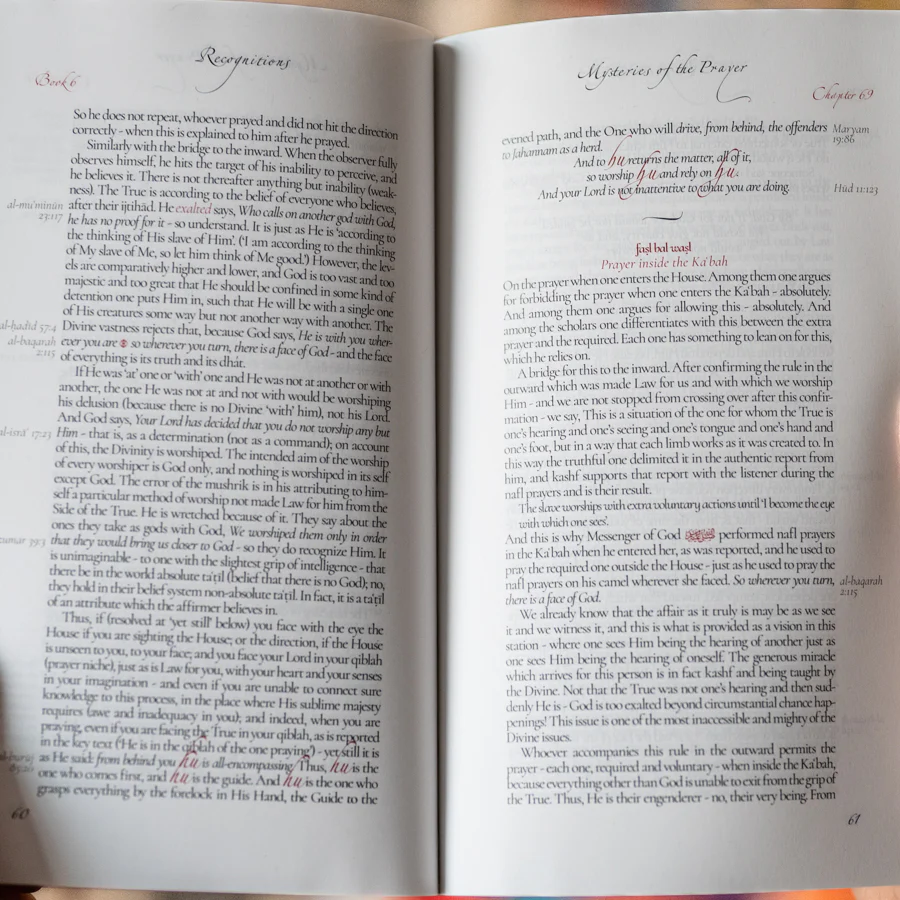 Recognitions
Book 6
So he does not repeat, whoever prayed and did not hit the direction
correctly - when this is explained to him after he prayed.
Similarly with the bridge to the inward. When the observer fully
observes himself, he hits the target of his inability to perceive, and
he believes it. There is not thereafter anything but inability (weak-
ness). The True is according to the belief of everyone who believes,
after their ijtihād. He exalted says, Who calls on another god with God,
al-mu'minūn
23:117
he has no proof for it - so understand. It is just as He is 'according to
the thinking of His slave of Him'. ('I am according to the thinking
of My slave of Me, so let him think of Me good.') However, the lev-
els are comparatively higher and lower, and God is too vast and too
majestic and too great that He should be confined in some kind of
detention one puts Him in, such that He will be with a single one
of His creatures some way but not another way with another. The
Divine vastness rejects that, because God says, He is with you wher-
al-ḥadīd 57:4
ever you are so wherever you turn, there is a face of God - and the face
al-baqarah
2:115
of everything is its truth and its dhāt.
If He was 'at' one or 'with' one and He was not at another or with
another, the one He was not at and not with would be worshiping
his delusion (because there is no Divine 'with' him), not his Lord.
And God says, Your Lord has decided that you do not worship any but
al-isrā' 17:23
Him - that is, as a determination (not as a command); on account
of this, the Divinity is worshiped. The intended aim of the worship
of every worshiper is God only, and nothing is worshiped in its self
except God. The error of the mushrik is in his attributing to him-
self a particular method of worship not made Law for him from the
Side of the True. He is wretched because of it. They say about the
ones they take as gods with God, We worshiped them only in order
zumar 39:3
that they would bring us closer to God - so they do recognize Him. It
is unimaginable - to one with the slightest grip of intelligence - that
there be in the world absolute ta'ṭīl (belief that there is no God); no,
they hold in their belief system non-absolute ta'ṭīl. In fact, it is a ta'ṭīl
of an attribute which the affirmer believes in.
Thus, if (resolved at 'yet still' below) you face with the eye the
House if you are sighting the House; or the direction, if the House
is unseen to you, to your face; and you face your Lord in your qiblah
(prayer niche), just as is Law for you, with your heart and your senses
in your imagination - and even if you are unable to connect sure
knowledge to this process, in the place where His sublime majesty
requires (awe and inadequacy in you); and indeed, when you are
praying, even if you are facing the True in your qiblah, as is reported
in the key text ('He is in the qiblah of the one praying') - yet still it is
as He said: from behind you hu is all-encompassing. Thus, hu is the
al-burūj
85:20
one who comes first, and hu is the guide. And hu is the one who
grasps everything by the forelock in His Hand, the Guide to the
60
Mysteries of the Prayer
Chapter 69
evened path, and the One who will drive, from behind, the offenders
Maryam
19:86
to Jahannam as a herd.
And to hu returns the matter, all of it,
so worship hu and rely on hu.
And your Lord is not inattentive to what you are doing.
Hūd 11:123
faṣl bal waṣl
Prayer inside the Ka'bah
On the prayer when one enters the House. Among them one argues
for forbidding the prayer when one enters the Ka'bah - absolutely.
And among them one argues for allowing this - absolutely. And
among the scholars one differentiates with this between the extra
prayer and the required. Each one has something to lean on for this,
which he relies on.
A bridge for this to the inward. After confirming the rule in the
outward which was made Law for us and with which we worship
Him - and we are not stopped from crossing over after this confir-
mation - we say, This is a situation of the one for whom the True is
one's hearing and one's seeing and one's tongue and one's hand and
one's foot, but in a way that each limb works as it was created to. In
this way the truthful one delimited it in the authentic report from
him, and kashf supports that report with the listener during the
nafl prayers and is their result.
The slave worships with extra voluntary actions until 'I become the eye
with which one sees'.
And this is why Messenger of God ﷺ performed nafl prayers
in the Ka'bah when he entered her, as was reported, and he used to
pray the required one outside the House - just as he used to pray the
nafl prayers on his camel wherever she faced. So wherever you turn,
al-baqarah
2:115
there is a face of God.
We already know that the affair as it truly is may be as we see
it and we witness it, and this is what is provided as a vision in this
station - where one sees Him being the hearing of another just as
one sees Him being the hearing of oneself. The generous miracle
which arrives for this person is in fact kashf and being taught by
the Divine. Not that the True was not one's hearing and then sud-
denly He is - God is too exalted beyond circumstantial chance hap-
penings! This issue is one of the most inaccessible and mighty of the
Divine issues.
Whoever accompanies this rule in the outward permits the
prayer - each one, required and voluntary - when inside the Ka'bah,
because everything other than God is unable to exit from the grip of
the True. Thus, He is their engenderer - no, their very being. From
61